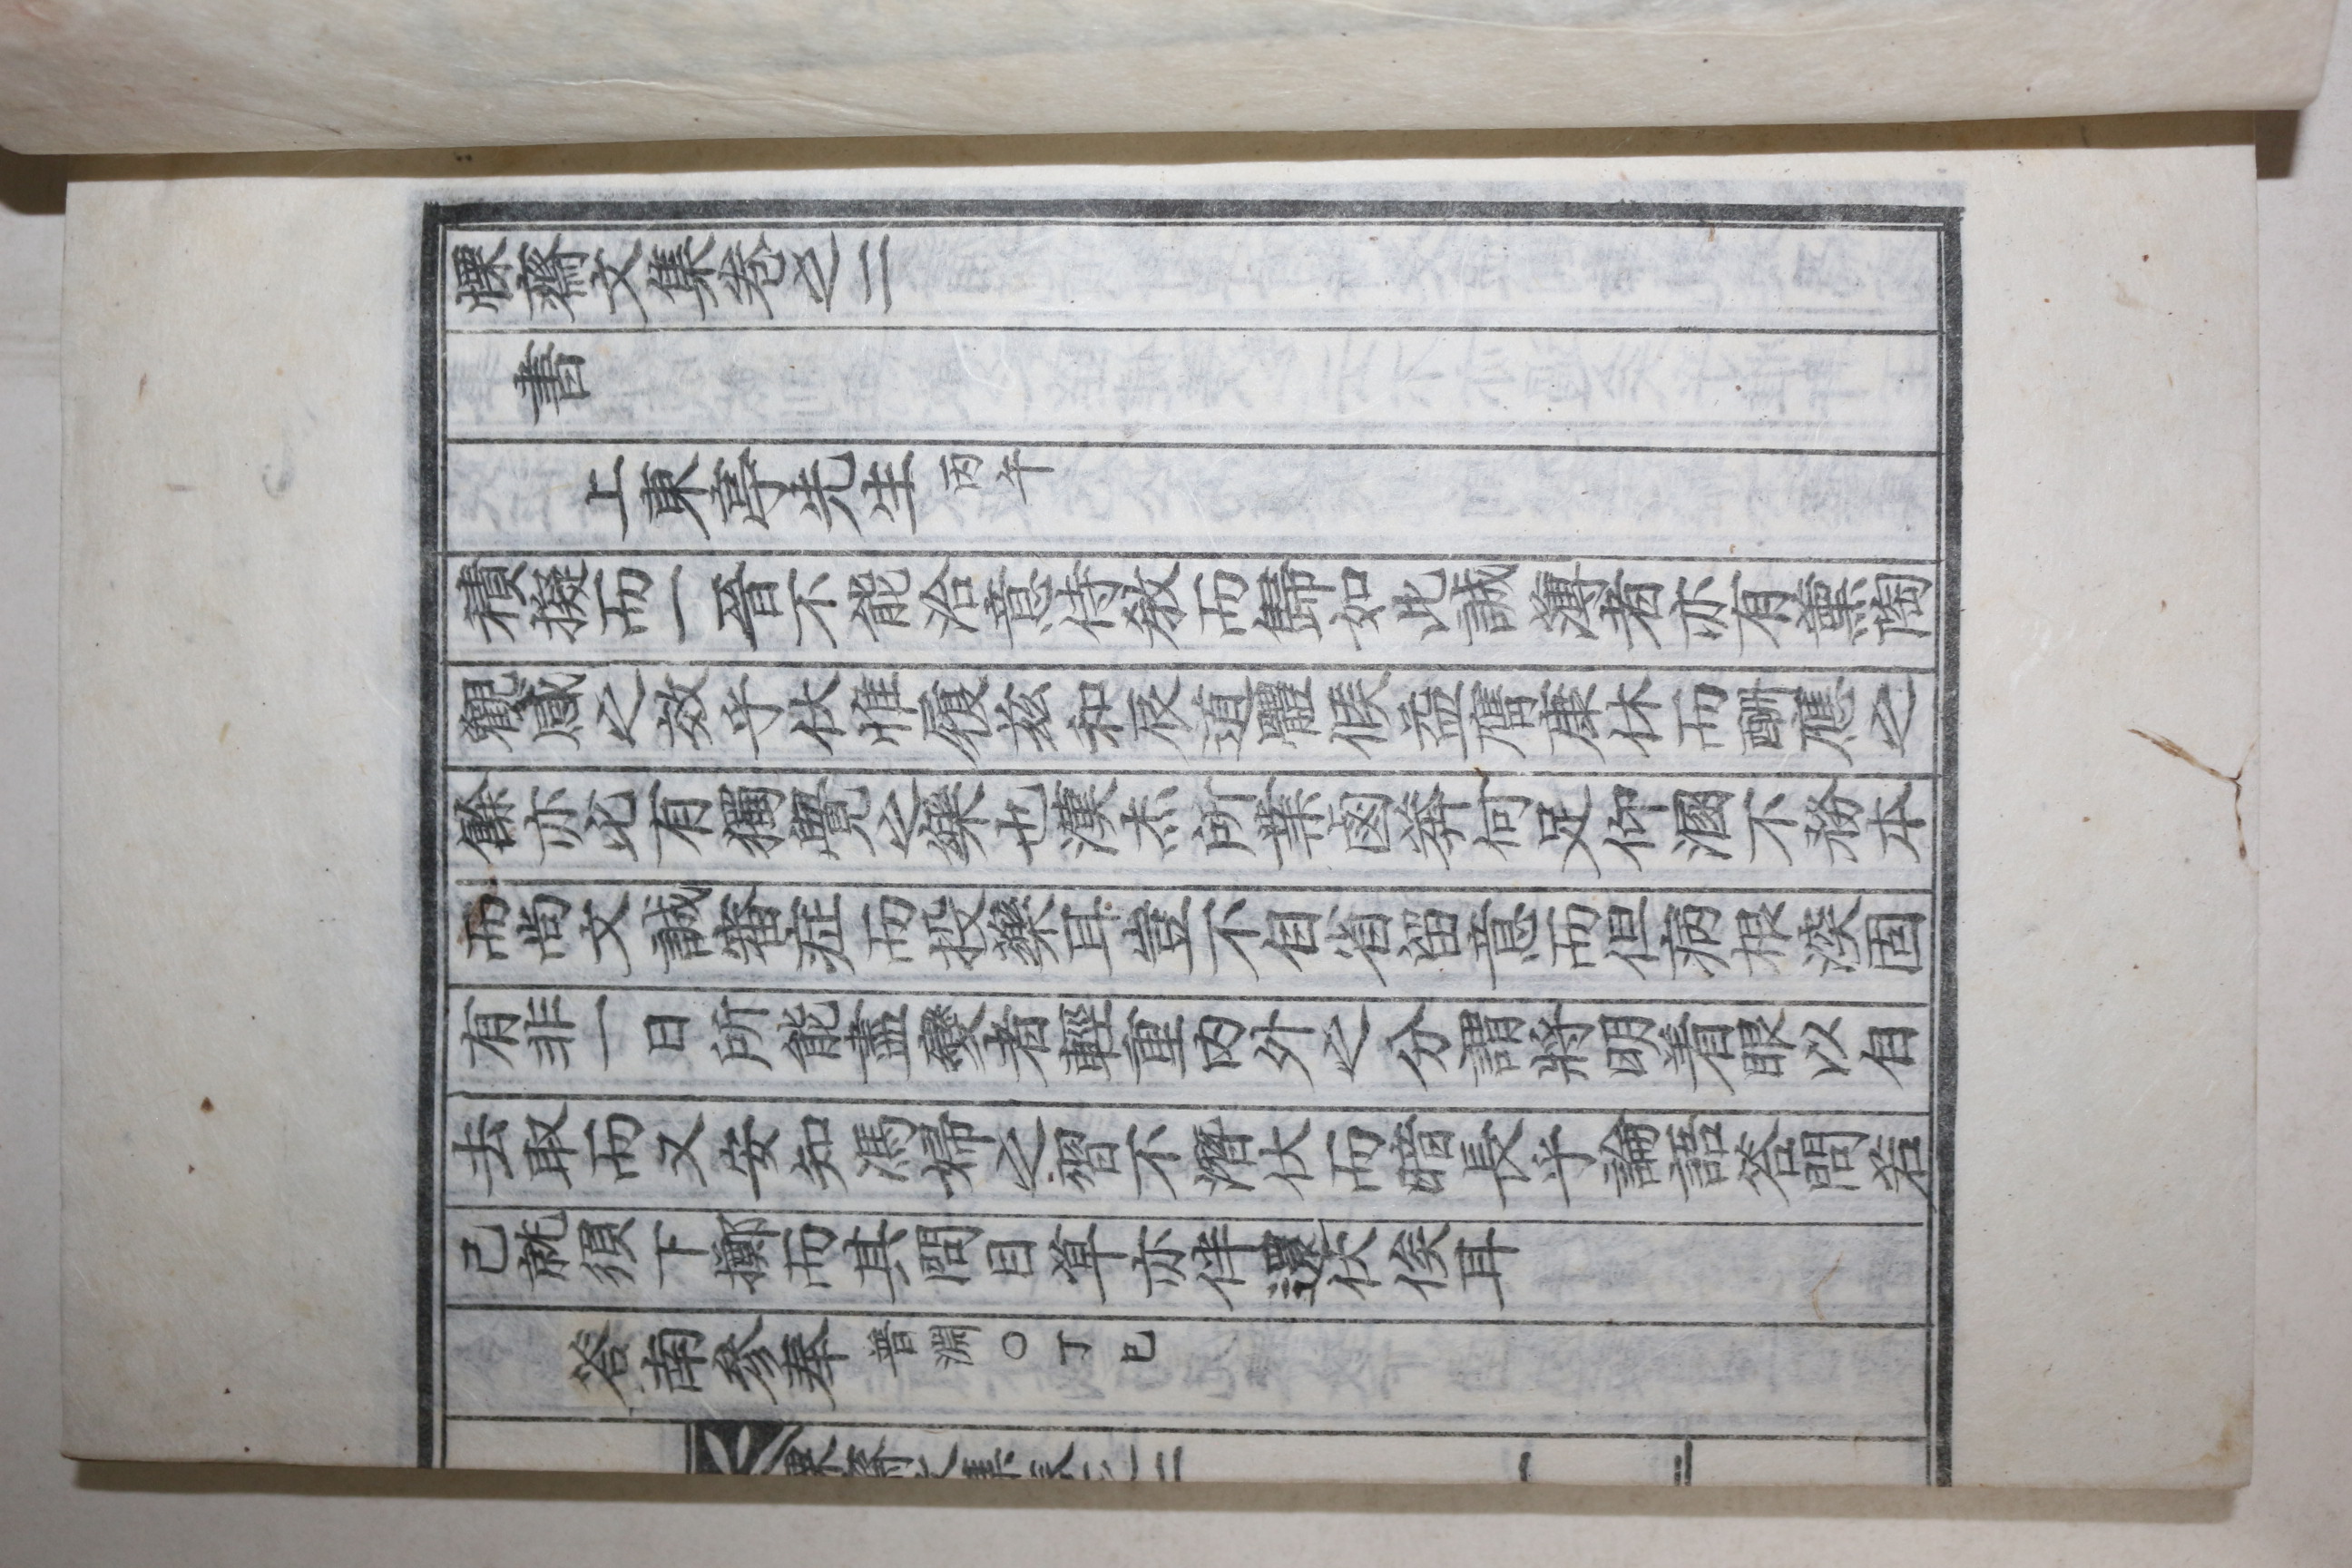 慄齋文集卷之二
書
上東亭先生 丙午
積擬而一晉不能洽意侍敎而歸如此誠薄者亦有薰陶
觀感之效乎伏惟履玆和辰道體候益膺康休而酬應之
餘亦必有獨覺之樂也漢杰所業鹵莽何足仰溷不務本
而尚文誠審症而投藥耳豈不自省留意而但病根深固
有非一日所能盡變者輕重內外之分謂將明着眼以自
去取而又安知馮婦之習不潛伏而暗長乎論語答問若
己就須下擲而其問目草亦伴還伏俟耳
答南參奉 普淵○丁巳
慄齋文集卷之二 一